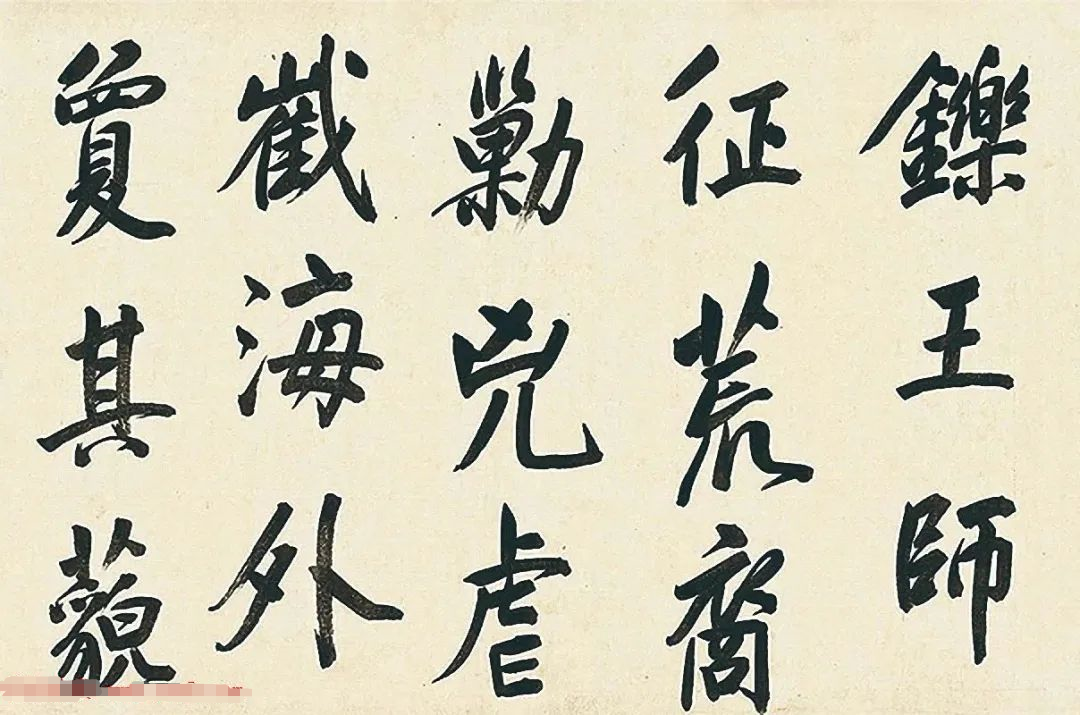 鑠王師
征荒裔
勦兇虐
截海外
夐其藐